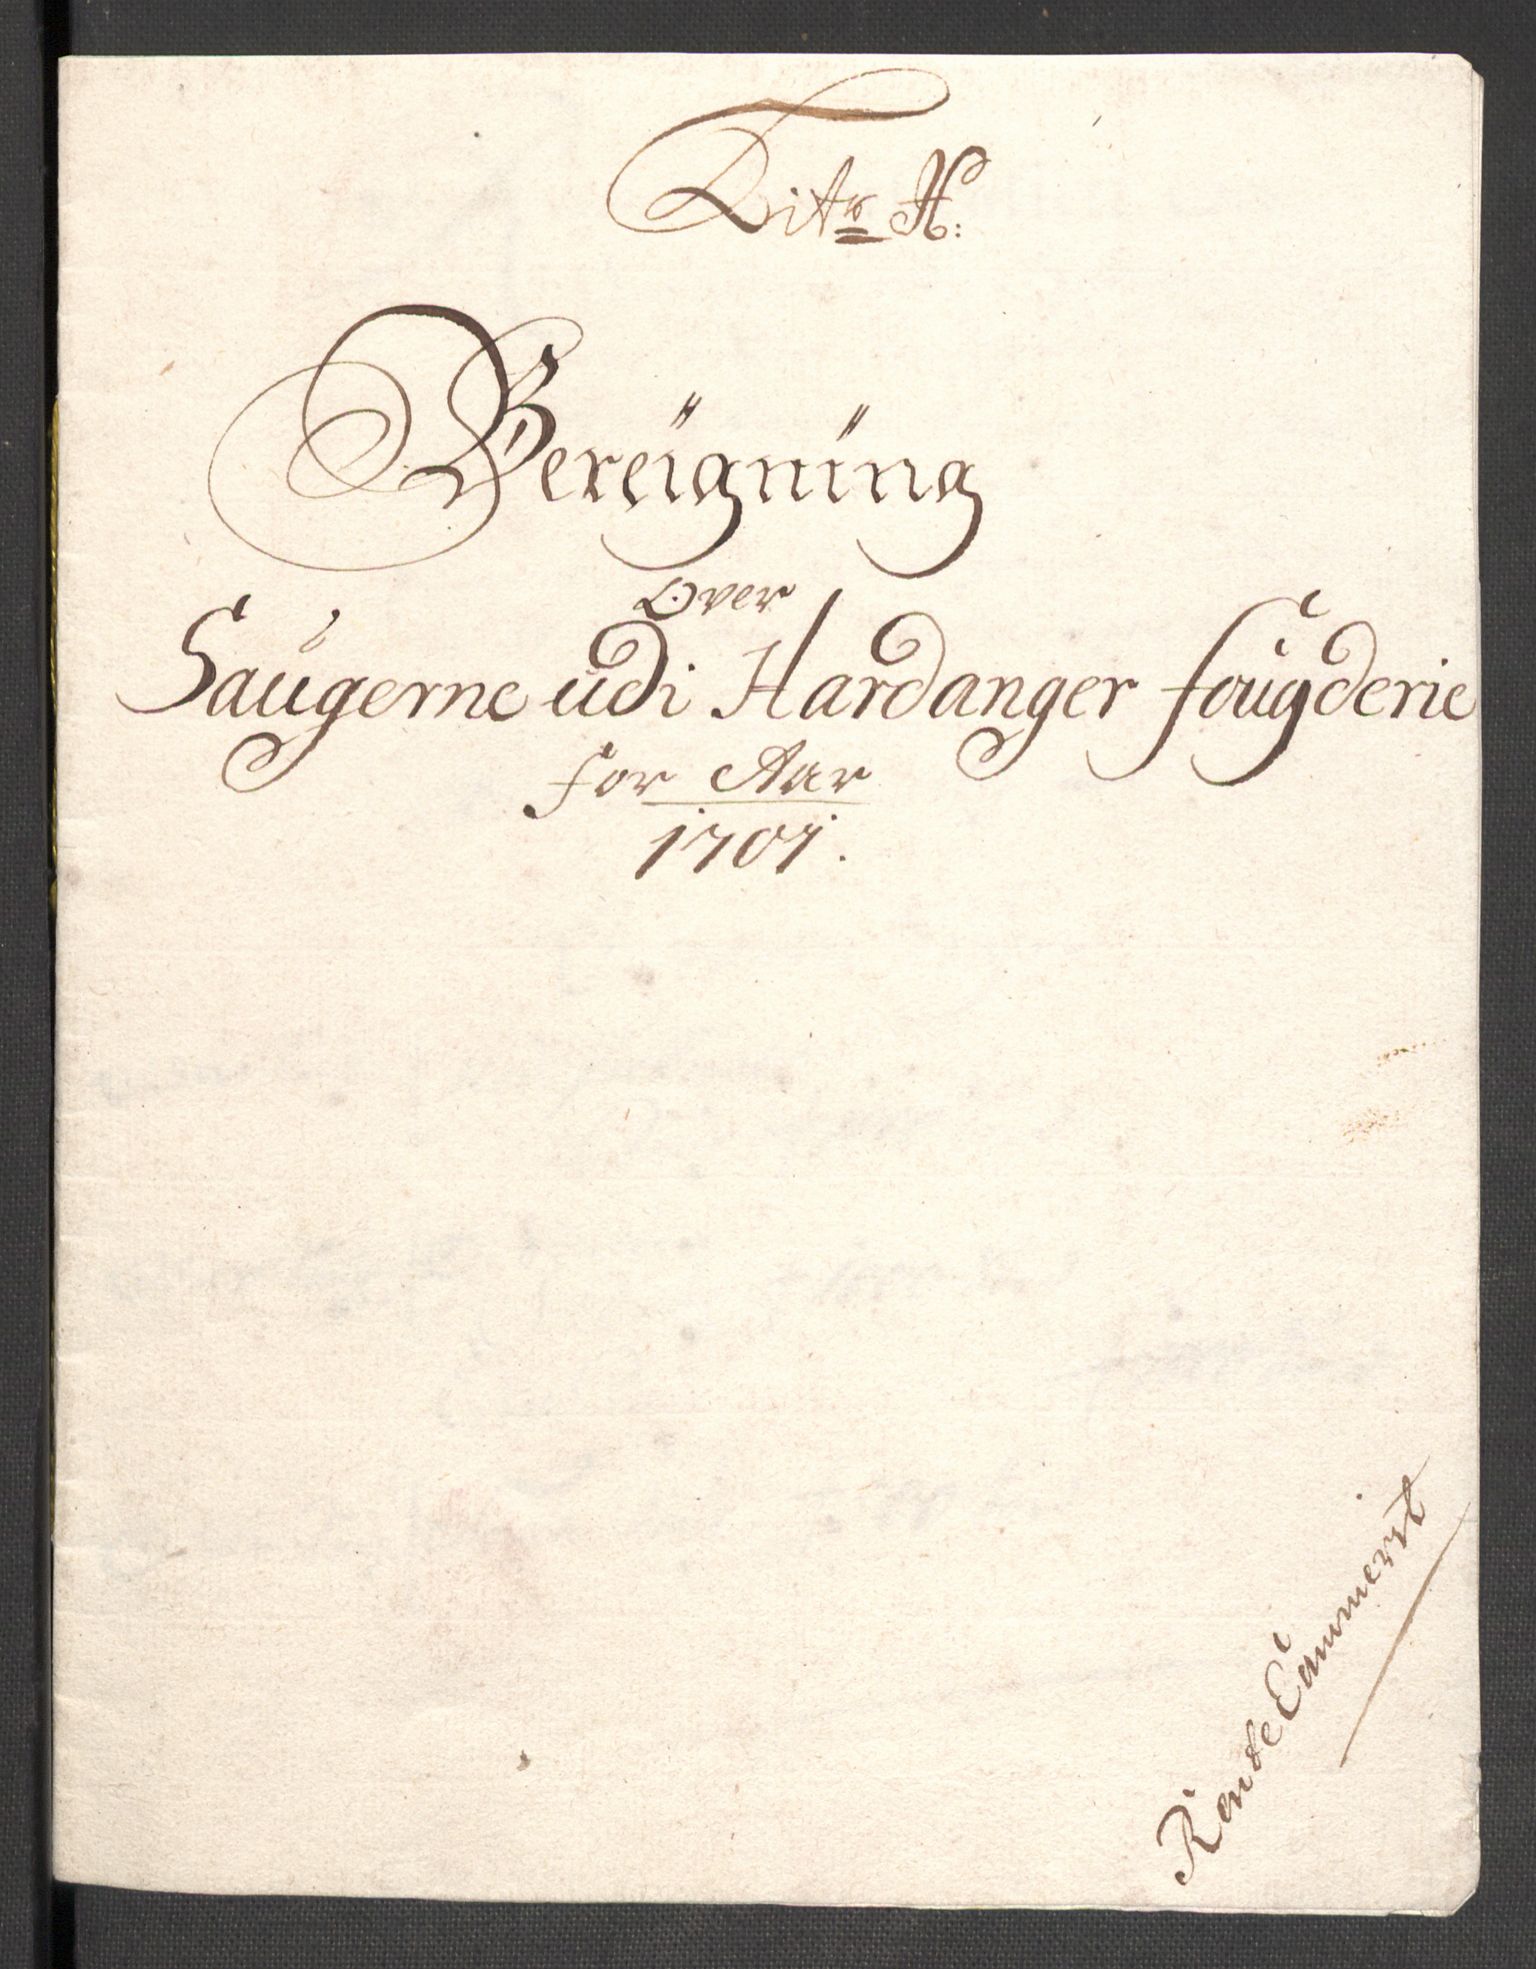 Litr H:
Bereigning
Over
Saugerne udi Hardanger fougderie
for Aar
1707.
Rente Cammerit